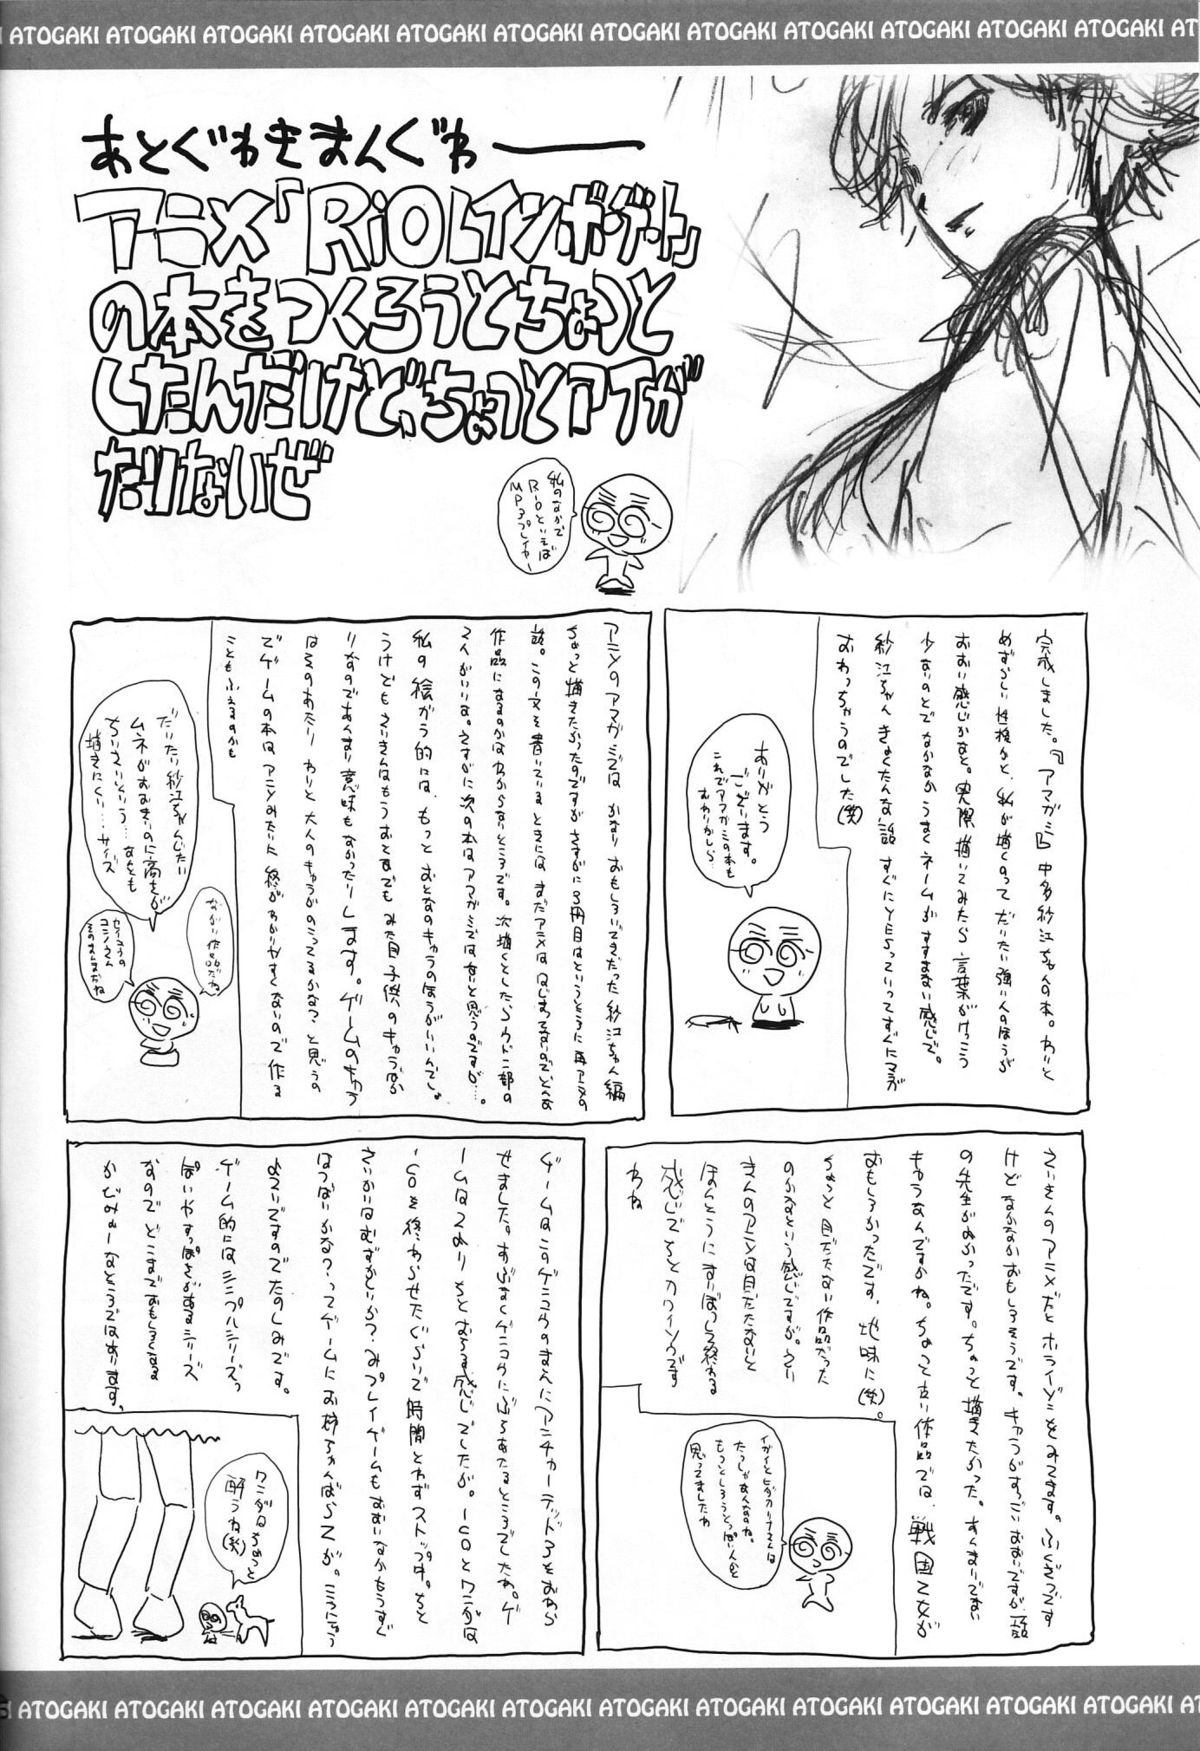 ATOGAKI ATOGAKI ATOGAKI ATOGAKI ATOGAKI ATOGAKI ATOGAKI ATOGAKI ATOGAKI ATOGAKI ATOGAKI ATOGAKI AT
あとぐわきまんぐわー
アニメ「RiOレインボーゲート」
の本をつくろうとちょっと
したんだけど、ちょっとアイが
たりないぜ
私のなかで
Rioといえば
MP3プレイヤー
完成しました。『アマガミ』中多紗江ちゃんの本。わりと
めずらしい性格かと、私が描くのってだいたい強い人のほうが
おおい感じかなと。実際描いてみたら言葉がけっこう
少ないのとでなかなかうまくネームがすすまない感じで。
紗江ちゃんきょくたんな話すぐにYESっていってすぐにマンガ
おわっちゃうのでした(笑)
ありがとう
ございます。
これでアマガミの本も
おわりかしら
アニメのアマガミではかなりおもしろいできだった紗江ちゃん編
ちょっと描きたかったのですがさすがに3冊目はというところに再アニメの
話。この文を書いているときにはまだアニメははじまってないのでどんな
作品になるのかはわからないところです。次描くとしたらウチ
私の絵がら的には、もっとおとなのキャラのほうがいいんでしょ
うけども
りなのであんまり意味もなかったりします。ゲームのキャラ
はそのあたりわりと大人のキャラがのってるかな?と思うの
でゲームの本はアニメみたいに終がわかりやすくないので作る
こともふえるのかも
だいたい紗江ちゃんじたい
ムネがおおきいのに高さが
ちいさいという…なんとも
描きにくい…サイズ
ながい作品だわ
そのまんまだね
さいきんのアニメだとホライゾンをみてます。ふくざつです
けどなかなかおもしろそうです。キャラがすっごいおおいですが
の先生がよかったです。ちょっと描きたかった。
キャラなんですかね。ちょっと古い作品では、戦国乙女が
おもしろかったです、地味に(笑)。
ちょっと目だたない作品だった
のかなという感じですが。さい
きんのアニメは目だたないと
ほんとうに
感じで
わね
もっとしろうとっぽい人かと
思ってましたわ
ゲームはこの
せました。
ICOを終わらせたぐらいで時間とれずストップ中。
さいかいはむずかしいか?みプレイゲームもおおいなかもうすぐ
はつばいかな?ってゲームにお姉ちゃんばらZが。
よていですのでたのしみです。
ゲーム的にはシンプルシリーズっ
ぽいやすっぽさがあるシリーズ
なのでどこまでおもしろくなる
かびみょーなところではあります。
ワンダはちょっと
酔うね(笑)
ATOGAKI ATOGAKI ATOGAKI ATOGAKI ATOGAKI ATOGAKI ATOGAKI ATOGAKI ATOGAKI ATOGAKI ATOGAKI ATOGAKI ATOGAKI